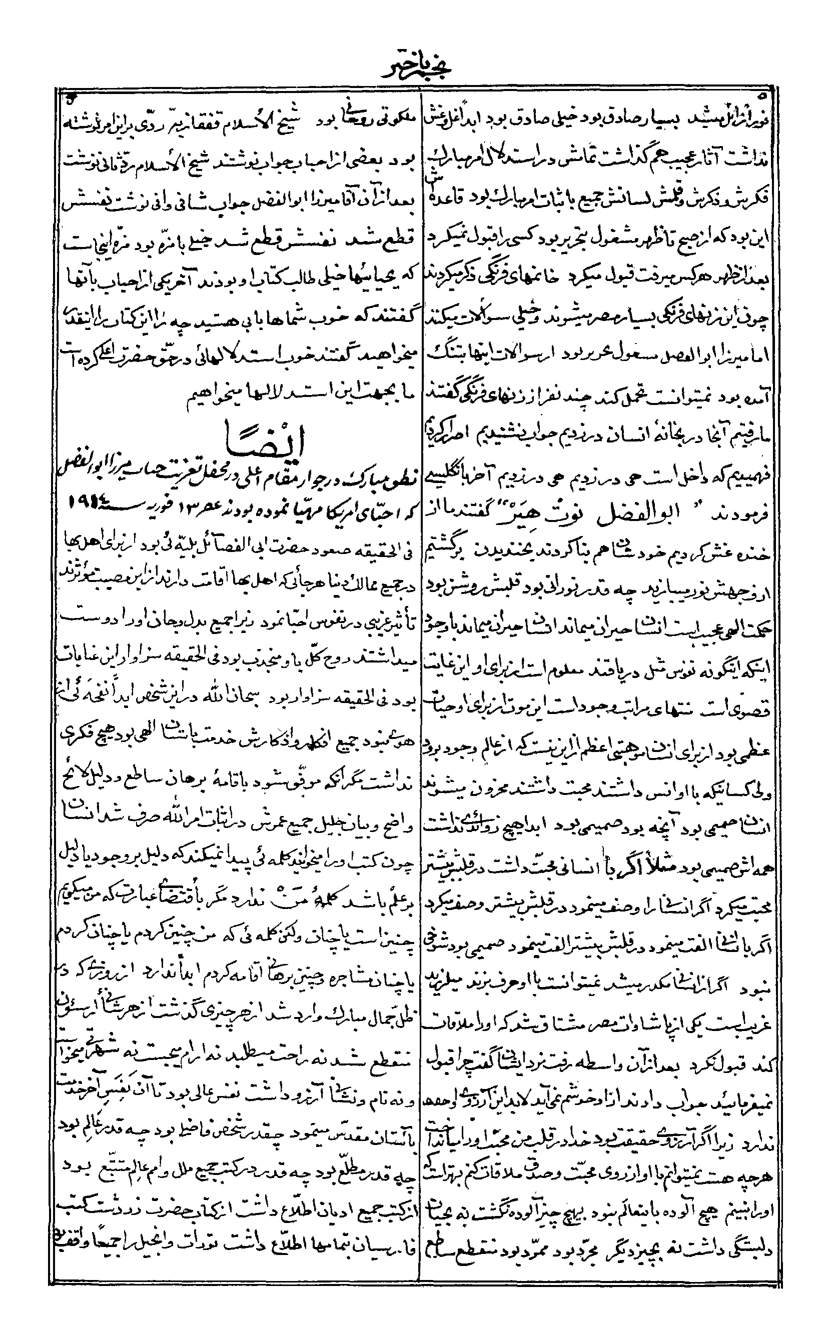 نجم باختر
۵
نور از او میشد بسیار صادق بود خیلی صادق بود ابداً غل و غش
نداشت آثار عجیب هم گذاشت تمامش در استدلال امر مبارک
فکرش و ذکرش و قلمش لسانش جمیع باثبات امر مبارک بود قاعده اش
این بود که از صبح تا ظهر مشغول بتحریر بود کسی را قبول نمیکرد
بعد از ظهر هر کس میرفت قبول میکرد خانمهای فرنگی ذکر میکردند
چون این زنهای فرنگی بسیار مصر میشوند و خیلی سؤالات میکنند
اما میرزا ابوالفضل مشغول بتحریر بود از سوالات اینها بتنگ
آمده بود نمیتوانست تحمل کند چند نفر از زنهای فرنگی گفتند
ما رفتیم آنجا در بخانهٔ ایشان در زدیم جواب نشنیدیم اصرار کردیم
فهمیدیم که داخل است هی در زدیم هی در زدیم آخر بانگلیسی
فرمودند " ابوالفضل نوت هیَر " گفتند ما از
خنده غش کردیم خودشان هم بنا کردند بخندیدن برگشتیم
از وجهش نور میبارید چه قدر نورانی بود قلبش روشن بود
حکمت الهی عجیب است انسان حیران میماند انسان حیران میماند با وجود
اینکه اینگونه نفوس مثل دریا قند معلوم است از برای او این غایت
قصوی است منتهای مراتب وجود است این موت از برای او حیات
عظمی بود از برای انسان موهبتی اعظم از این نیست که از عالم وجود برود
ولی کسانیکه با او انس داشتند محبت داشتند محزون میشوند
انسان صمیمی بود آنچه بود صمیمی بود ابدا هیچ زوائدی نداشت
همه اش صمیمی بود مثلاً اگر با انسانی محبّت داشت در قلبش بیشتر
محبت میکرد اگر انسانی را وصف مینمود در قلبش بیشتر وصف میکرد
اگر با انسانی الفت مینمود در قلبش بیشتر الفت مینمود صمیمی بود شوخی
نبود اگر از انسانی مکدر میشد نمیتوانست با او حرف بزند میلرزید
غریب است یکی از پاشاوات مصر مشتاق شد که او را ملاقات
کند قبول نکرد بعد از آن واسطه رفت نزد ایشان گفت چرا قبول
نمیفرمایید جواب دادند از او خوشم نمی آید لابد این آرزوی او حقیقت
ندارد زیرا اگر آرزوی حقیقت بود خدا در قلب من محبّت او را میانداخت
هر چه هست نمیتوانم با او از روی محبّت و صدق ملاقات کنم بهتر است که
او را نبینم هیچ آلوده باینعالم نبود بهیچ چیز آلوده نگشت نه بحیات
دلبستگی داشت نه بچیز دیگر مجرّد بود ممرّد بود منقطع ساطع
ملکوتی روحانی بود شیخ الأسلام قفقازیه ردّی بر این امر نوشته
بود بعضی از احباب جواب نوشتند شیخ الأسلام ردّ ثانی نوشت
بعد از آن آقا میرزا ابوالفضل جواب شافی وافی نوشت نفسش
قطع شد نفسش قطع شد خیلی بامزه بود مزه اینجاست
که یحیائیها خیلی طالب کتاب او بودند آخر یکی از احباب بآنها
گفتند که خوب شماها بابی هستید چه را این کتاب را اینقدر
میخواهید گفتند خوب استدلالهائی در حقّ حضرت اعلی کرده است
ما بجهت این استدلالها میخواهیم
ایضاً
نطق مبارک در جوار مقام اعلی در محفل تعزیت جناب میرزا ابوالفضل
که احبّای امریکا مهیّا نموده بودند عصر ۱۳ فوریه سنه ۱۹۱۴
فی الحقیقه صعود حضرت ابی الفضائل بلیّه ئی بود از برای اهل بها
در جمیع ممالک دنیا هر جائی که اهل بها اقامت دارند از این مصیبت مؤثرند
تأثیر غریبی در نفوس احبّا نمود زیرا جمیع بدل و جان او را دوست
میداشتند روح کلّ با و منجذب بود فی الحقیقه سزاوار این عنایات
بود فی الحقیقه سزاوار بود سبحان الله در این شخص ابداً نفحهٔ ئی از
هوی نبود جمیع افکار و اذکارش خدمت باستان الهی بود هیچ فکری
نداشت مگر آنکه موفّق شود باقامهٔ برهان ساطع و دلیل لائح
واضح و بیان جلیل جمیع عمرش در اثبات امر الله صرف شد انسان
چون کتب او را میخواند کلمه ئی پیدا نمیکند که دلیل بر وجود یا دلیل
بر علم باشد کلمهٔ مَن ندارد مگر باقتضای عبارت که من میگویم
چنین است یا چنان ولکن کلمه ئی که من چنین کردم یا چنان کردم
یا چنان مشاجره و چنین برهانی اقامه کردم ابداً ندارد از روزی که در
ظل جمال مبارک وارد شد از هر چیزی گذشت از هر شأنی از شئون
منقطع شد نه راحت میطلبد نه آرام میجست نه شهرتی میخواست
و نه نام و نشانی آرزو داشت نفس عالی بود تا آن نَفَس آخر خدمت
بآستان مقدّس مینمود چقدر شخص فاضل بود چه قدر عالم بود
چه قدر مطّلع بود چه قدر در کتب جمیع ملل و امم عالم متتبّع بود
از کتب جمیع ادیان اطّلاع داشت از کتاب حضرت زردشت کتب
فارسیان بتمامها اطّلاع داشت تورات و انجیل را جمیعاً واقف بود